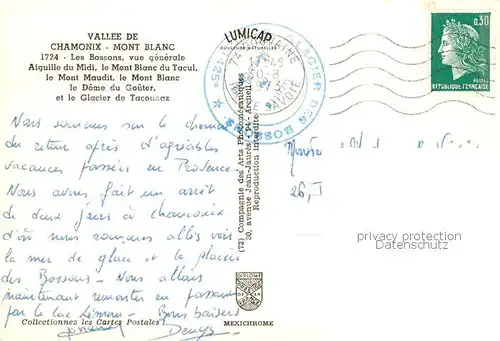 VALLEE DE
CHAMONIX - MONT BLANC
1724 - Les Bossons, vue générale
Aiguille du Midi, le Mont Blanc du Tacul,
le Mont Maudit, le Mont Blanc
le Dôme du Goûter,
et le Glacier de Taconnaz
LUMICAP
COULEURS NATURELLES
GLACIER DES BOSSONS
1425m
74
HAUTE SAVOIE
0,30
POSTES
REPUBLIQUE FRANÇAISE
Nous sommes sur le chemin
du retour après d'agréables
vacances passées en Provence.
Nous avons fait un arrêt
de deux jours à Chamonix
d'où nous sommes allés voir
la mer de glace et le glacier
des Bossons - Nous allons
maintenant remonter en passant
par le lac Léman - Bons baisers
Denys
(72) Compagnie des Arts Photomécaniques
30, avenue Jean-Jaurès - 94 - Arcueil
Reproduction interdite
26,
privacy protection
Datenschutz
Collectionnez les Cartes Postales !
MEXICHROME